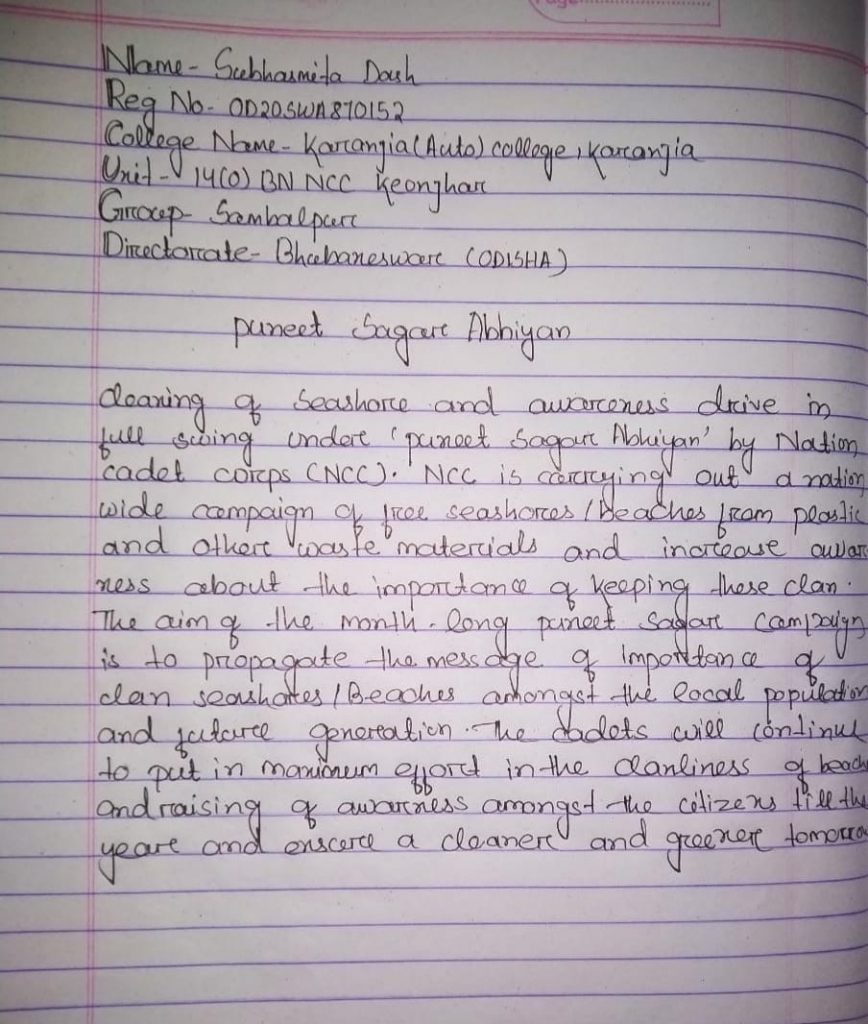 Page
Name - Subhasmita Dash
Reg No - OD20SWA870152
College Name - Karanjia (Auto) college, Karanjia
Unit - 14(O) BN NCC Keonjhar
Group - Sambalpur
Directorate - Bhubaneswar (ODISHA)
Puneet Sagar Abhiyan
cleaning of seashore and awareness drive in
full swing under 'puneet Sagar Abhiyan' by Nation
cadet corps (NCC). NCC is carrying out a nation
wide campaign of free seashores / Beaches from plastic
and other waste materials and increase awar
ness about the importance of keeping these clan.
The aim of the month-long puneet Sagar Campaign
is to propagate the message of importance of
clan seashores / Beaches amongst the local population
and future generation. The cadets will continue
to put in maximum effort in the clanliness of beach
and raising of awarness amongst the citizens till the
year and ensure a cleaner and greener tomorrow